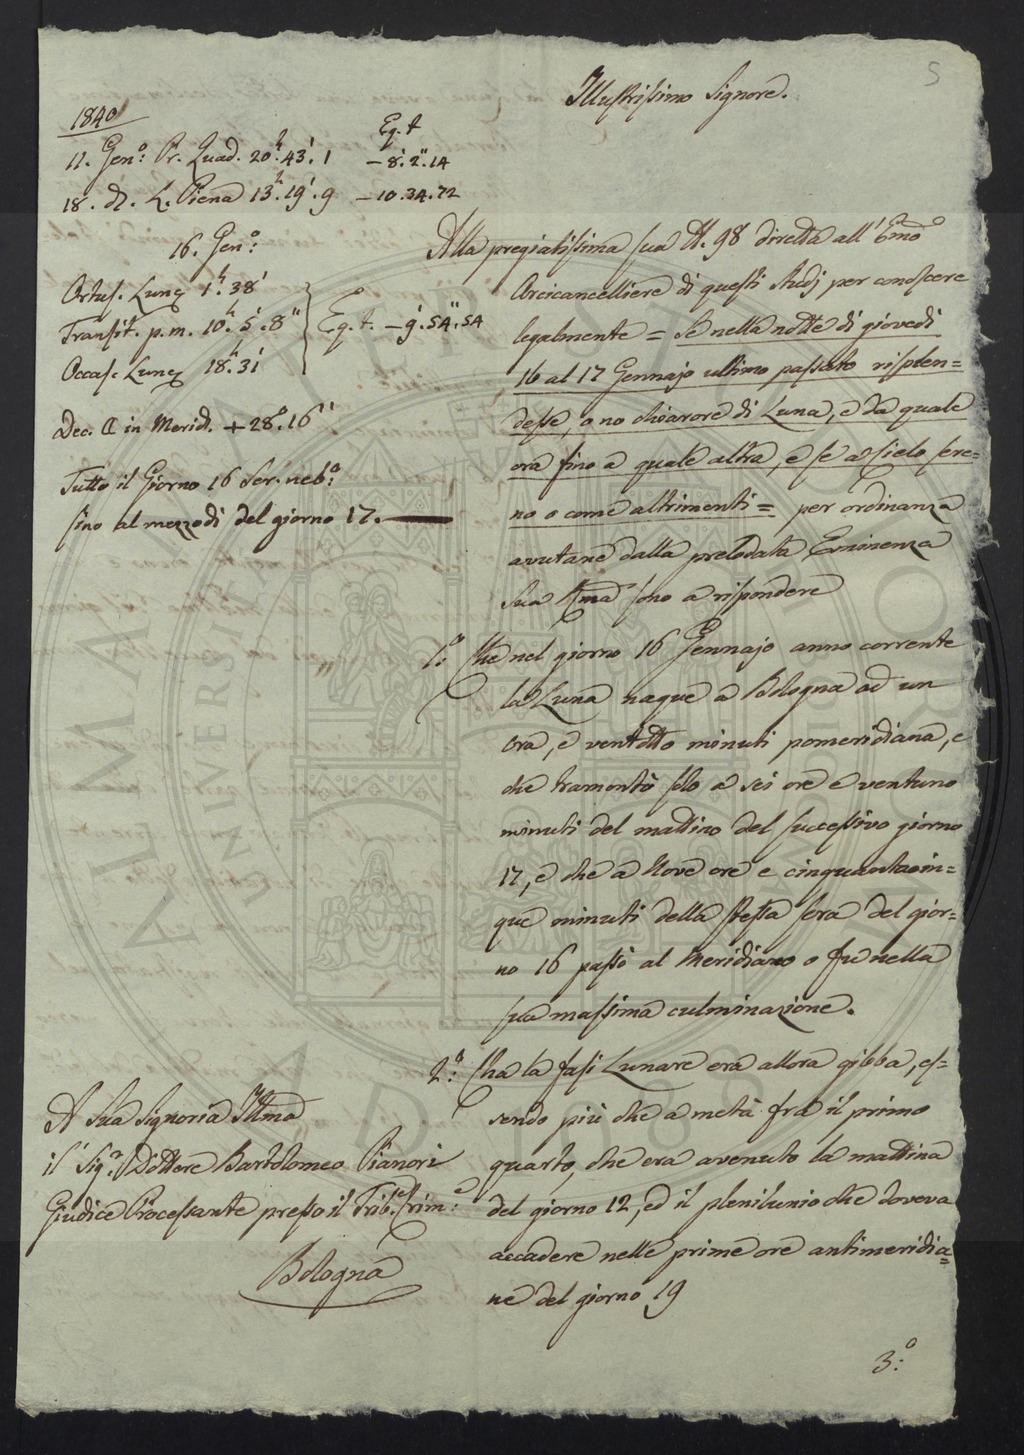 5
Illustrissimo Signore.
1840
Eq. t
11. Gen.º Pr. Quad. 20.h 43.' 1 – 8.' 2." 14
18. d.º L. Piena 13.h 19.' 9 – 10. 34. 72
16. Gen.º:
Ortus. Lunę 1.h 38'
Transit. p. m. 10.h 5.' 8" Eq. t. – 9.' 54." 54
Occas. Lunę 18.h 31'
Dec. ☾ in Merid. + 28.º 16'
Tutto il Giorno 16 Ser. neb.º
sino al mezzodì del giorno 17. —
Alla pregiatissima sua N. 98 diretta all'Emo
Arcicancelliere di questi Studj per conoscere
legalmente = Se nella notte di giovedì
16 al 17 Gennajo ultimo passato risplen=
desse, o no chiarore di Luna, e da quale
ora fino a quale altra, e se a Cielo sere=
no o come altrimenti = per ordinanza
avutane dalla prelodata Eminenza
Sua Rma sono a rispondere
1.º: Che nel giorno 16 Gennajo anno corrente
la Luna naque a Bologna ad un
ora, e ventotto minuti pomeridiana, e
che tramontò solo a sei ore e ventuno
minuti del mattino del successivo giorno
17, e che a Nove ore e cinquantacin=
que minuti della stessa sera del gior=
no 16 passò al Meridiano o fu nella
sua massima culminazione.
2.º: Cha la fasi Lunare era allora gibba, es=
sendo più che a metà fra il primo
quarto, che era avenuto la mattina
del giorno 12, ed il plenilunio che doveva
accadere nelle prime ore antimeridia=
ne del giorno 19
3.º:
A Sua Signoria Illma
il Sig.r Dottore Bartolomeo Pianori
Giudice Processante presso il Trib.e Crim.e
Bologna
ALMA MATER STUDIORUM
UNIVERSITÀ DI BOLOGNA
A.D. 1088